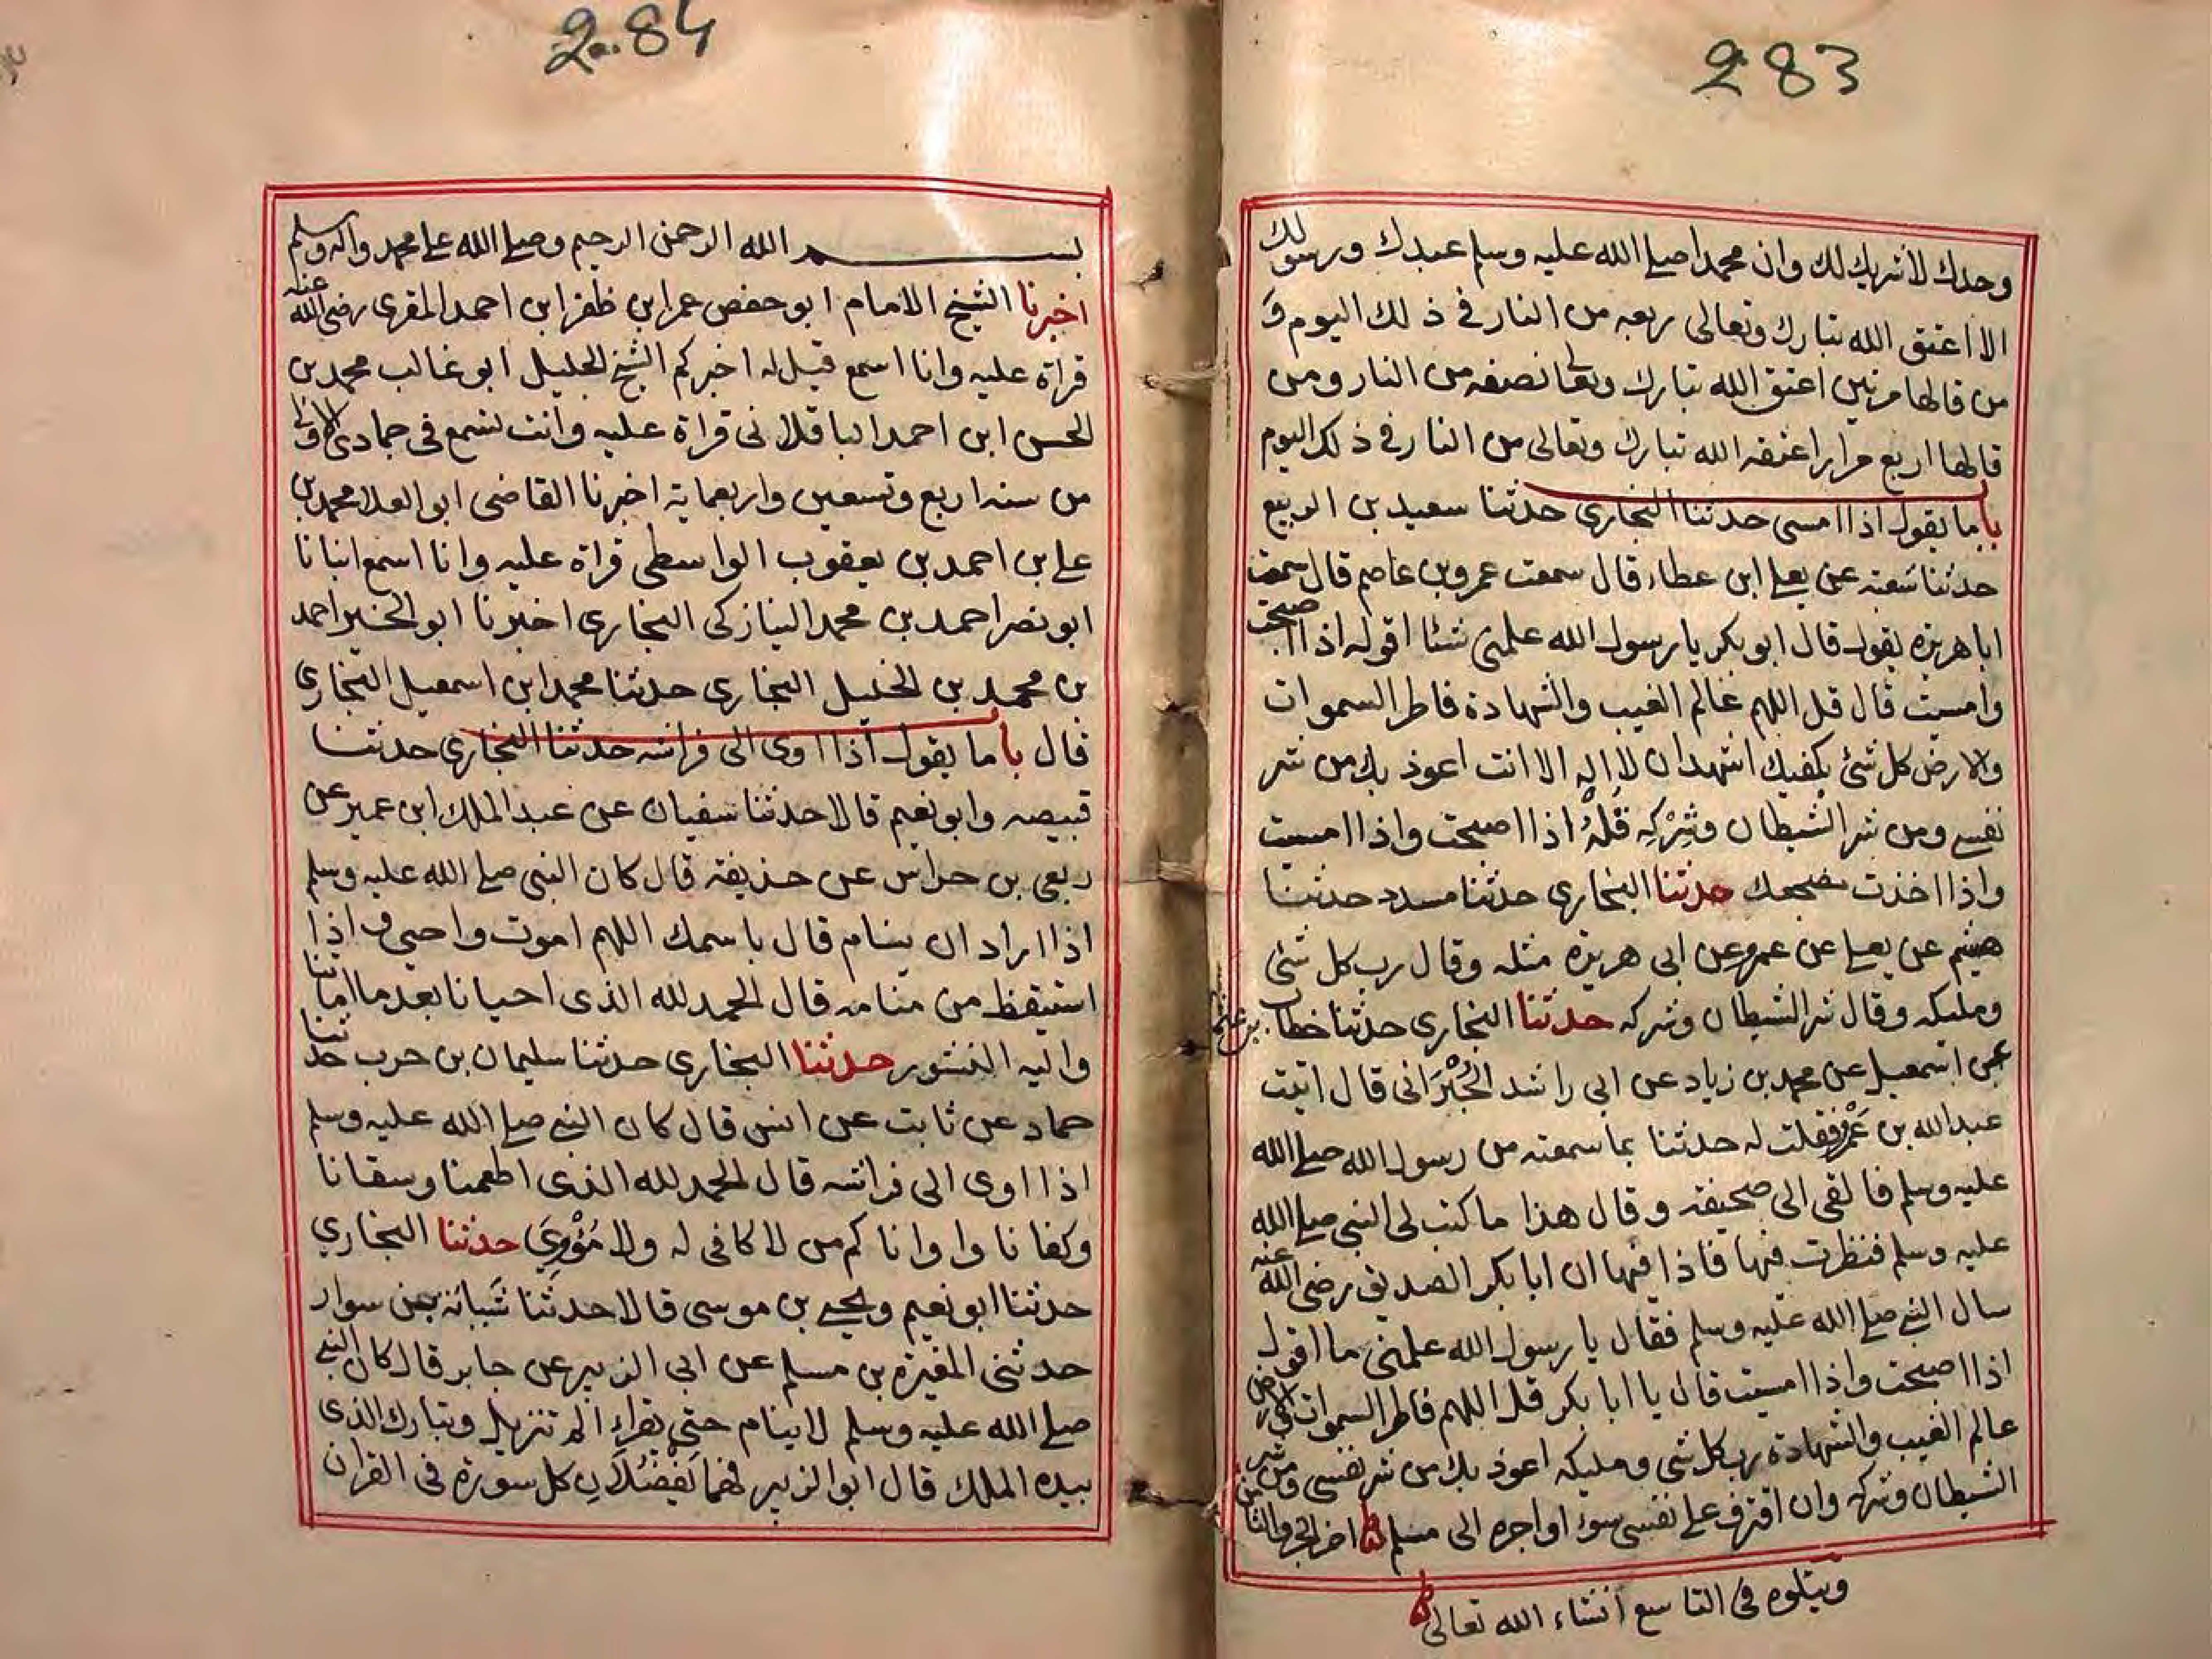 283
وحدك لا شريك لك وان محمدا صلے الله عليه وسلم عبدك ورسولك
الا اعتق الله تبارك وتعالى ربعه من النار في ذلك اليوم و
من قالها مرتين اعتق الله تبارك وتعالى نصفه من النار ومن
قالها اربع مرار اعتقه الله تبارك وتعالى من النار في ذلك اليوم
باب ما يقول اذا امسى حدثنا البخاري حدثنا سعيد بن الربيع
حدثنا شعبه عن يعلے ابن عطاء قال سمعت عمرو بن عاصم قال سمعت
ابا هريرة يقول قال ابو بكر يا رسول الله علمني شئا اقوله اذا اصبحت
وامسيت قال قل اللهم عالم الغيب والشهادة فاطر السموات
والارض كل شئ بكفيك اشهد ان لا اله الا انت اعوذ بك من شر
نفسے ومن شر الشيطان وشِرْكِه قُلْهُ اذا اصبحت واذا امسيت
واذا اخذت مضجعك حدثنا البخاري حدثنا مسدد حدثنا
هشيم عن يعلے عن عمرو عن ابي هريرة مثله وقال رب كل شئ
ومليكه وقال شر الشيطان وشركه حدثنا البخاري حدثنا خطاب بن عثمان
عن اسمعيل عن محمد بن زياد عن ابي راشد الحُبْرَاني قال اتيت
عبدالله بن عَمْرٍو فقلت له حدثنا بما سمعته من رسول الله صلے الله
عليه وسلم فالقى الى صحيفة وقال هذا ما كتب لى النبي صلے الله
عليه وسلم فنظرت فيها فاذا فيها ان ابا بكر الصديق رضى الله عنه
سال النبي صلے الله عليه وسلم فقال يا رسول الله علمني ما اقول
اذا اصبحت واذا امسيت قال يا ابا بكر قل اللهم فاطر السموات والارض
عالم الغيب والشهادة رب كل شي ومليكه اعوذ بك من شر نفسى ومن شر
الشيطان وشركه وان اقترف علے نفسى سوءا او اجره الى مسلم اخر الجزء الثامن
ويتلوه في التاسع انشاء الله تعالى
284
بسم الله الرحمن الرحيم وصلے الله علے محمد واله وسلم
اخبرنا الشيخ الامام ابو حفص عمر ابن ظفر ابن احمد المقرى رضى الله عنه
قراة عليه وانا اسمع قيل له اخبركم الشيخ الجليل ابو غالب محمد بن
الحسن ابن احمد الباقلاني قراة عليه وانت تسمع في جمادى الاولى
من سنه اربع وتسعين واربعماية اخبرنا القاضى ابو العلا محمد بن
علے بن احمد بن يعقوب الواسطى قراة عليه وانا اسمع انبانا
ابو نصر احمد بن محمد النيازكى البخاري اخبرنا ابو الخير احمد
بن محمد بن الخليل البخاري حدثنا محمد ابن اسمعيل البخاري
قال باب ما يقول اذا اوى الى فراشه حدثنا البخاري حدثنا
قبيصه وابو نعيم قالا حدثنا سفيان عن عبد الملك ابن عمير عن
ربعي بن حراش عن حذيفة قال كان النبي صلے الله عليه وسلم
اذا اراد ان ينام قال باسمك اللهم اموت واحيى ف اذا
استيقظ من منامه قال الحمد لله الذى احيانا بعد ما اماتنا
واليه النشور حدثنا البخاري حدثنا سليمان بن حرب حدثنا
حماد عن ثابت عن انس قال كان النبي صلے الله عليه وسلم
اذا اوى الى فراشه قال الحمد لله الذى اطعمنا وسقانا
وكفانا واوانا كم من لا كافى له ولا مُؤْوِيَ حدثنا البخاري
حدثنا ابو نعيم ويحيے بن موسى قالا حدثنا شَبابة بن سوار
حدثنى المغيرة بن مسلم عن ابي الزبير عن جابر قال كان النبي
صلے الله عليه وسلم لا ينام حتى يقراء الم تنزيل وتبارك الذى
بيده الملك قال ابو الزبير فهما يَفْضُلَانِ كل سورة في القران